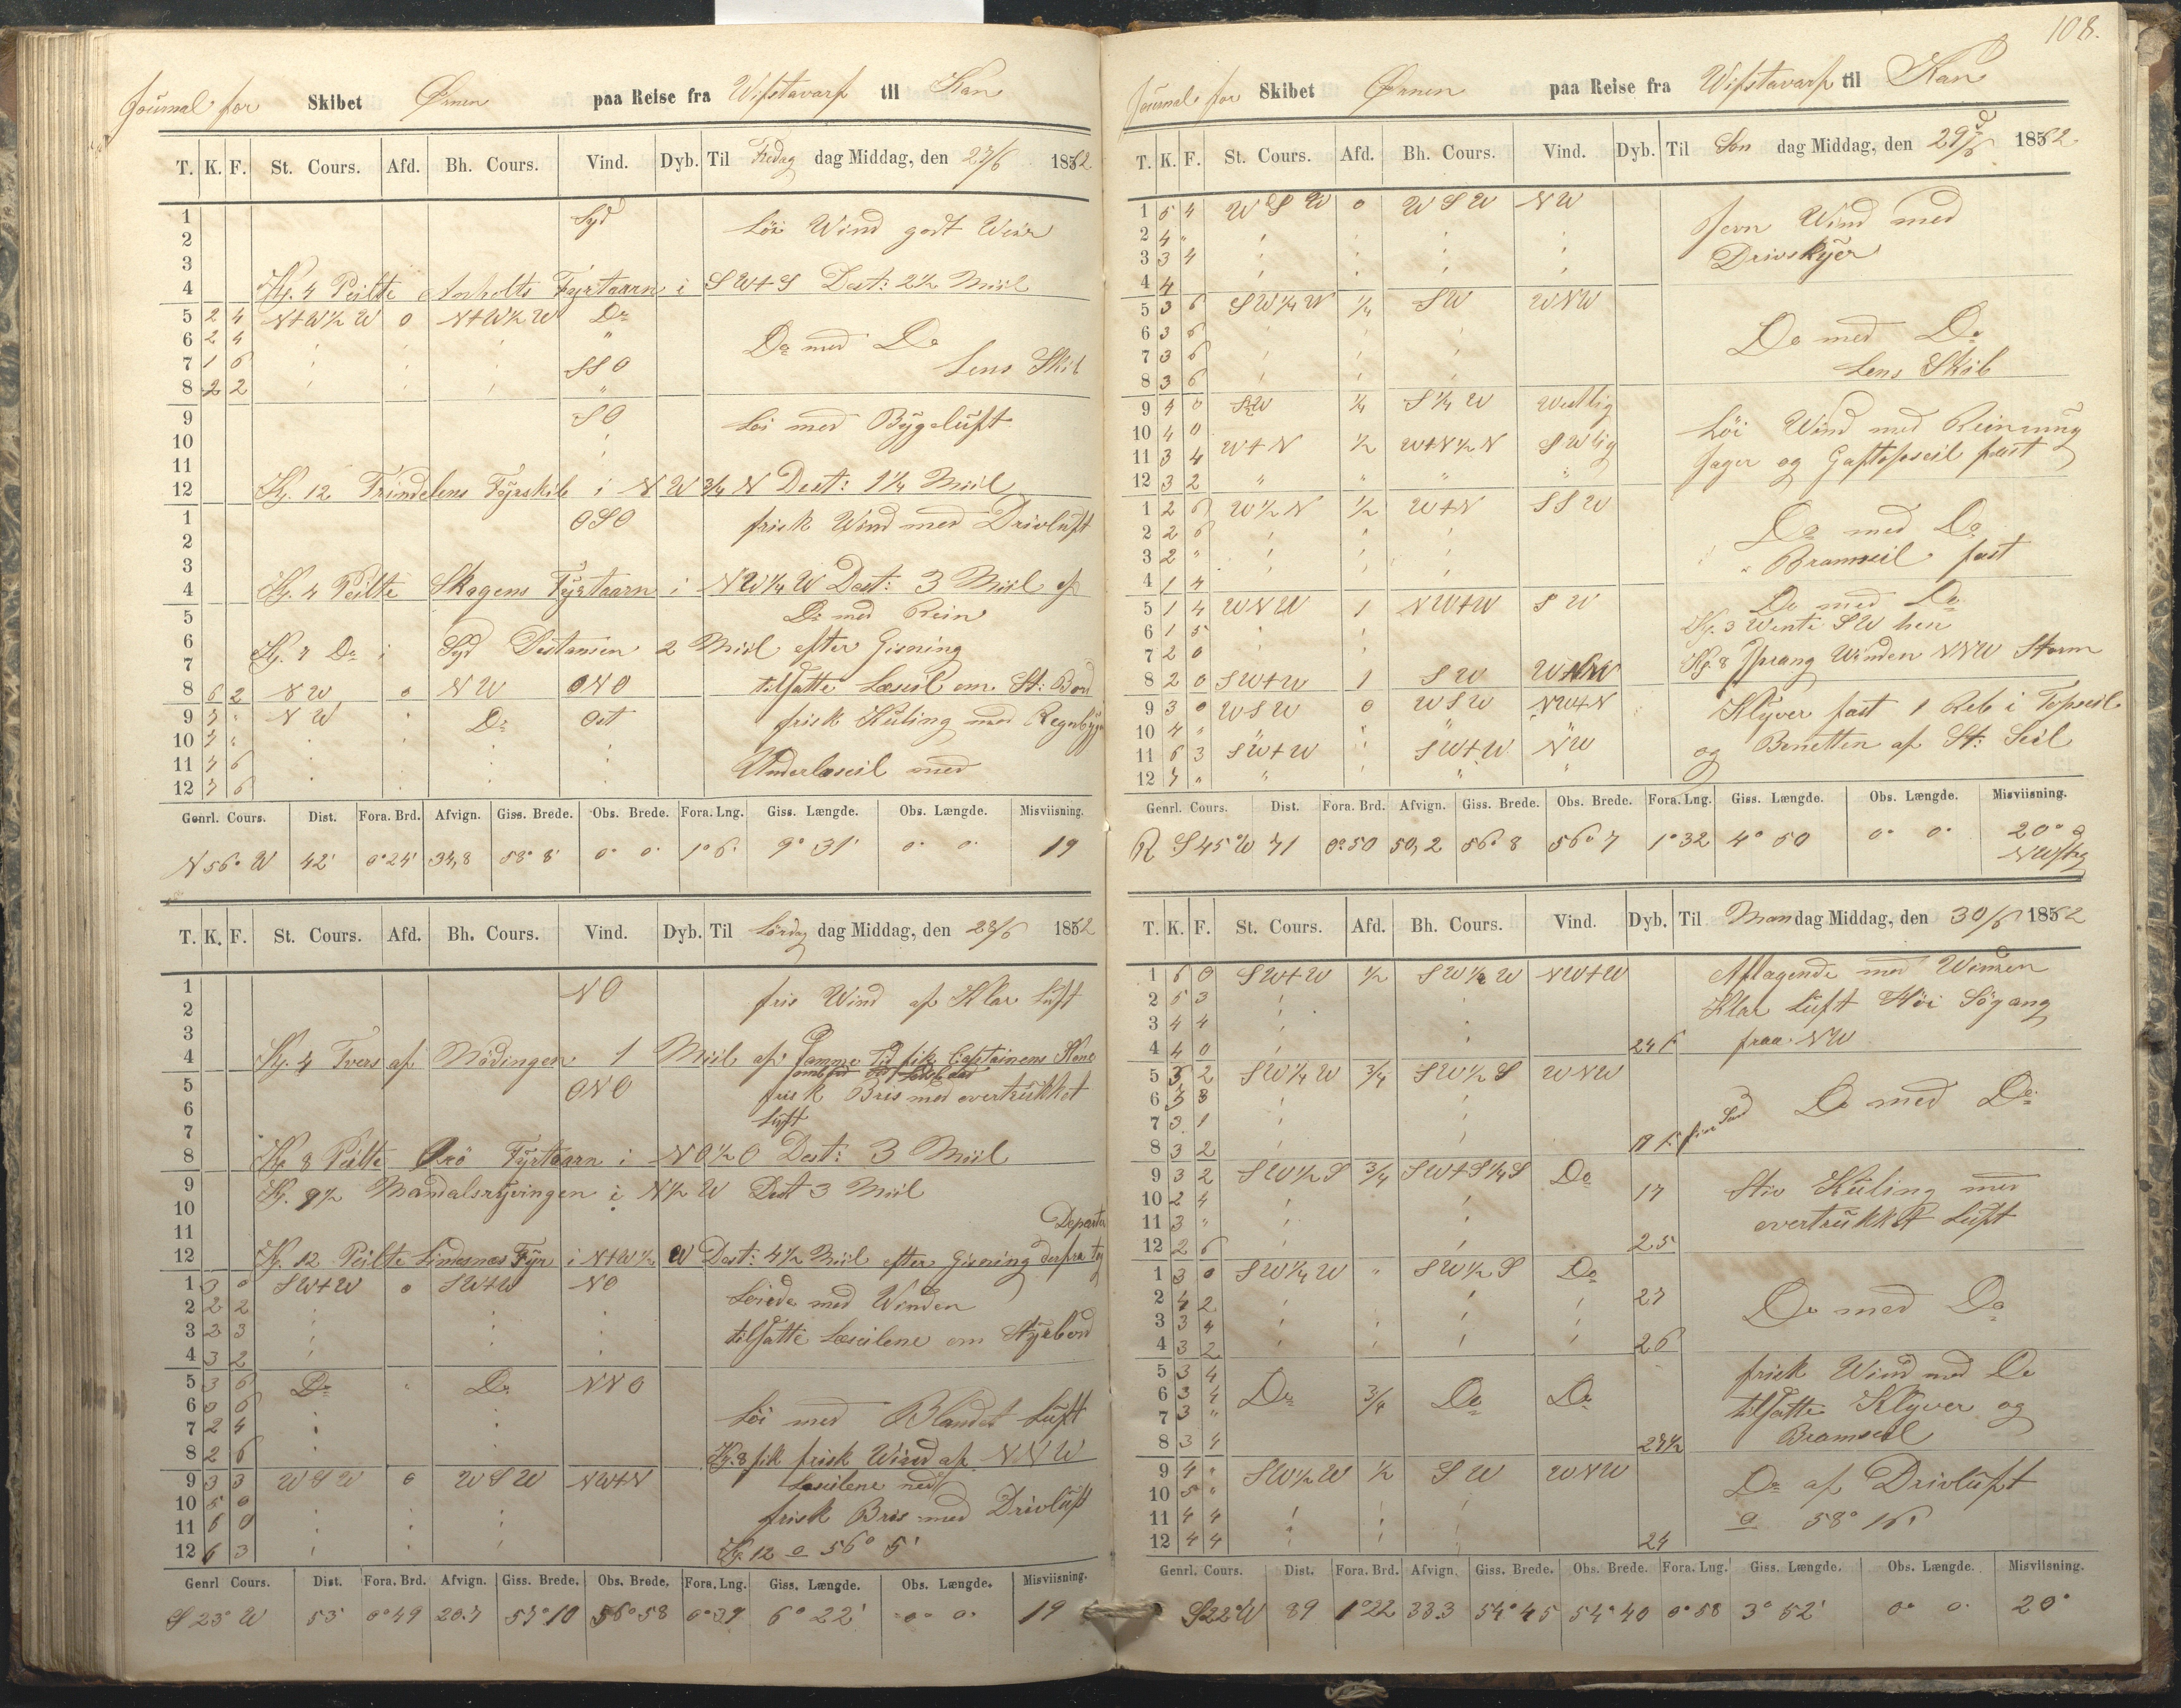 108.
Journal for Skibet Örnen paa Reise fra Wifstavarf til Kan
T. K. F. St. Cours. Afd. Bh. Cours. Vind. Dyb. Til Fredag dag Middag, den 27/6 1862.
1 Syd Löi Wind godt Weir
2
3
4 Kl. 4 Peilte Anholts Fyrtaarn i SW+S Dest: 2 1/2 Miil
5 2 4 N+W 1/2 W 0 N+W 1/2 W Do
6 2 4 " Do med Do
7 1 6 SSO Lens Skib
8 2 2 "
9 SO Löi med Bygeluft
10
11
12 Kl. 12 Trindelens Fyrskib i NW 3/4 N Dest: 1 1/4 Miil
1 OSO frisk Wind med Drivluft
2
3
4 Kl. 4 Peilte Skagens Fyrtaarn i NW 1/4 W Dest: 3 Miil af
5 Do med Rein
6
7 Kl. 7 Do i Syd Distansen 2 Miil efter Gisning
8 6 2 NW 0 NW ONO tilsatte Læseil om St: Bord
9 7 " NW " Do Ost frisk Kuling med Regnbyge
10 7 "
11 7 6 Underlæseil med
12 7 6
Genrl. Cours. Dist. Fora. Brd. Afvign. Giss. Brede. Obs. Brede. Fora. Lng. Giss. Længde. Obs. Længde. Misviisning.
N 56° W 42' 0°24' 34,8 58° 8' 0° 0' 1° 6' 9° 31' 0° 0' 19
T. K. F. St. Cours. Afd. Bh. Cours. Vind. Dyb. Til Lördag dag Middag, den 28/6 1862
1 NO fris Wind af Klar Luft
2
3
4 Kl. 4 Tvers af 1 Miil af. Samme Tid fik Captainens Kone
5 ONO frisk Bris med overtrukket
6 Luft
7
8 Kl. 8 Peilte Fyrtaarn i NO 1/2 O Dest: 3 Miil
9 Kl. 9 1/2 Mandalsryvingen i N 1/2 W Dest 3 Miil
10
11 Departe
12 Kl. 12 Peilte Lindesnæs Fyr i N+W 1/2 W Dest: 4 1/2 Miil efter Gisning derfra
1 3 0 SW+W 0 SW+W NO Löiede med Winden
2 2 2
3 3 3 tilsatte Læseilene om Styrbord
4 3 2
5 3 6 Do " Do NNO
6 3 6 Löi med Blandet Luft
7 2 4
8 2 6 Kl. 8 fik frisk Wind af NNW
9 3 3 WSW 0 WSW NW+N Læseilene ned
10 5 0 frisk Bris med Drivluft
11 6 0
12 6 3 Kl. 12 o 56° 5'
Genrl Cours. Dist. Fora. Brd. Afvign. Giss. Brede. Obs. Brede. Fora. Lng. Giss. Længde. Obs. Længde. Misviisning.
S 23° W 53 0°49 20.7 57°10 56°58 0°37 6° 22' 0° 0' 19
Journal for Skibet Örnen paa Reise fra Wifstavarf til Kan
T. K. F. St. Cours. Afd. Bh. Cours. Vind. Dyb. Til Sön dag Middag, den 29/6 1862.
1 5 4 WSW 0 WSW NW Jevn Wind med
2 4 "
3 3 4 Drivskyer
4 4
5 3 6 SW 1/4 W 1/4 SW WNW
6 3 6 Do med Do
7 3 6 Lens Skib
8 3 6
9 4 0 SW 1/4 S 1/4 W Westlig
10 4 0 Löi Wind med Reinning
11 3 4 W+N 1/2 W+N 1/2 N SWlig Jager og Gaftopseil fast
12 3 2 " " " "
1 2 6 W 1/2 N 1/2 W+N SSW
2 2 6 Do med Do
3 2 " Bramseil fast
4 1 4
5 1 4 WNW 1 NW+W SW Do med Do
6 1 5 Kl. 3 Wente SW hen
7 2 0 Kl. 8 Sprang Winden NNW Storm
8 2 0 SW+W 1 SW
9 3 0 WSW 0 WSW NW+N Klyver fast 1 Reb i Topseil
10 4 "
11 6 3 SW+W SW+W NW og Bonetten af St: Seil
12 7 " " " "
Genrl. Cours. Dist. Fora. Brd. Afvign. Giss. Brede. Obs. Brede. Fora. Lng. Giss. Længde. Obs. Længde. Misviisning.
R S45°W 71 0°50 50,2 56° 8 56° 7 1°32 4° 50 0° 0° 20°
T. K. F. St. Cours. Afd. Bh. Cours. Vind. Dyb. Til Man dag Middag, den 30/6 1862
1 6 0 SW+W 1/2 SW 1/2 W NW+W Aflagende med Winden
2 5 3 Klar Luft Höi Sögang
3 4 4
4 4 0 24 F fraa NW
5 3 2 SW 1/4 W 3/4 SW 1/2 S WNW
6 3 3 Do med Do
7 3 1
8 3 2 fin Sand
9 3 2 SW 1/2 S 3/4 SW+S 1/4 S Do
10 2 4 17 Stiv Kuling med
11 3 " overtrukket Luft
12 2 6 25
1 3 0 SW 1/4 W " SW 1/2 S Do
2 4 2 27 Do med Do
3 3 4
4 3 2 26
5 3 4 frisk Wind med Do
6 3 4 Do 3/4 Do Do tilsatte Klyver og
7 3 "
8 3 4 Bramseil
9 4 " SW 1/2 W 1/2 SW WNW Do af Drivluft
10 5 "
11 4 4 o 58° 16'
12 4 4 24
Genrl. Cours. Dist. Fora. Brd. Afvign. Giss. Brede. Obs. Brede. Fora. Lng. Giss. Længde. Obs. Længde. Misviisning.
S22°W 89 1°22 33.3 54°45 54°40 0°58 3° 52' 0° 0' 20°